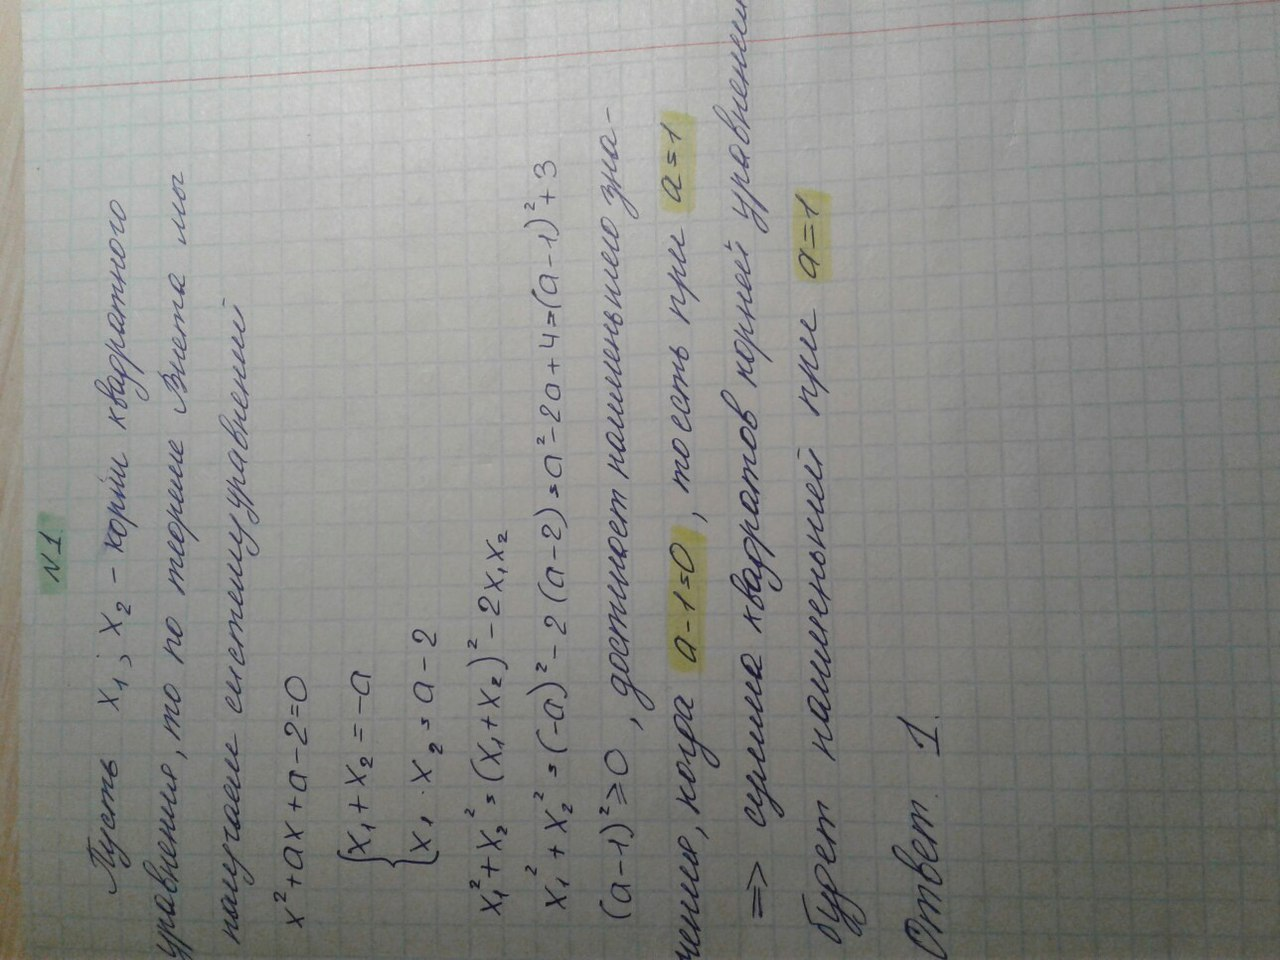 N1
Пусть x₁; x₂ - корни квадратного
уравнения, то по теореме Виета мы
получаем систему уравнений
x²+ax+a-2=0
{x₁+x₂=-a
{x₁·x₂=a-2
x₁²+x₂²=(x₁+x₂)²-2x₁x₂
x₁²+x₂²=(-a)²-2(a-2)=a²-2a+4=(a-1)²+3
(a-1)²≥0, достигает наименьшего зна-
чения, когда a-1=0, то есть при a=1
=> сумма квадратов корней уравнения
будет наименьшей при a=1
Ответ 1.